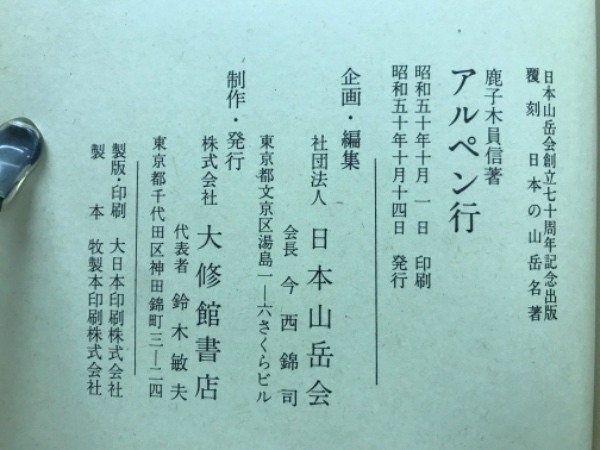 日本山岳会創立七十周年記念出版
覆刻 日本の山岳名著
鹿子木員信著
アルペン行
昭和五十年十月一日 印刷
昭和五十年十月十四日 発行
企画・編集
社団法人 日本山岳会
会長 今西錦司
東京都文京区湯島一―六さくらビル
制作・発行
株式会社 大修館書店
代表者 鈴木敏夫
東京都千代田区神田錦町三―二四
製版・印刷 大日本印刷株式会社
製本 牧製本印刷株式会社